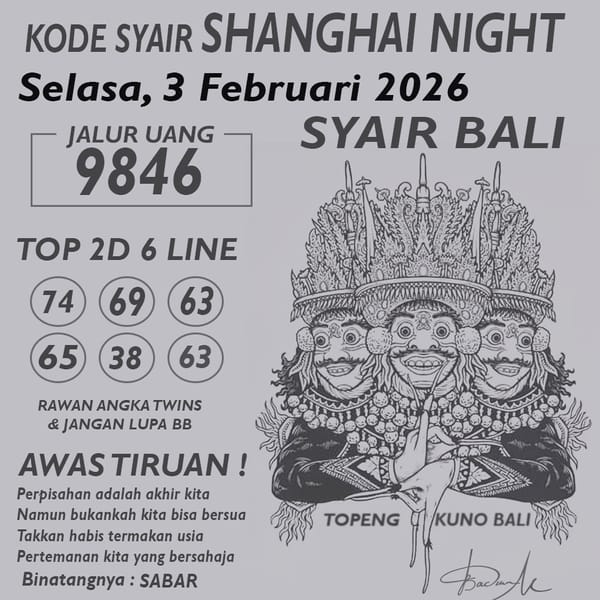 KODE SYAIR SHANGHAI NIGHT
Selasa, 3 Februari 2026
JALUR UANG
9846
SYAIR BALI
TOP 2D 6 LINE
74 69 63
65 38 63
RAWAN ANGKA TWINS
& JANGAN LUPA BB
AWAS TIRUAN !
Perpisahan adalah akhir kita
Namun bukankah kita bisa bersua
Takkan habis termakan usia
Pertemanan kita yang bersahaja
Binatangnya : SABAR
TOPENG KUNO BALI